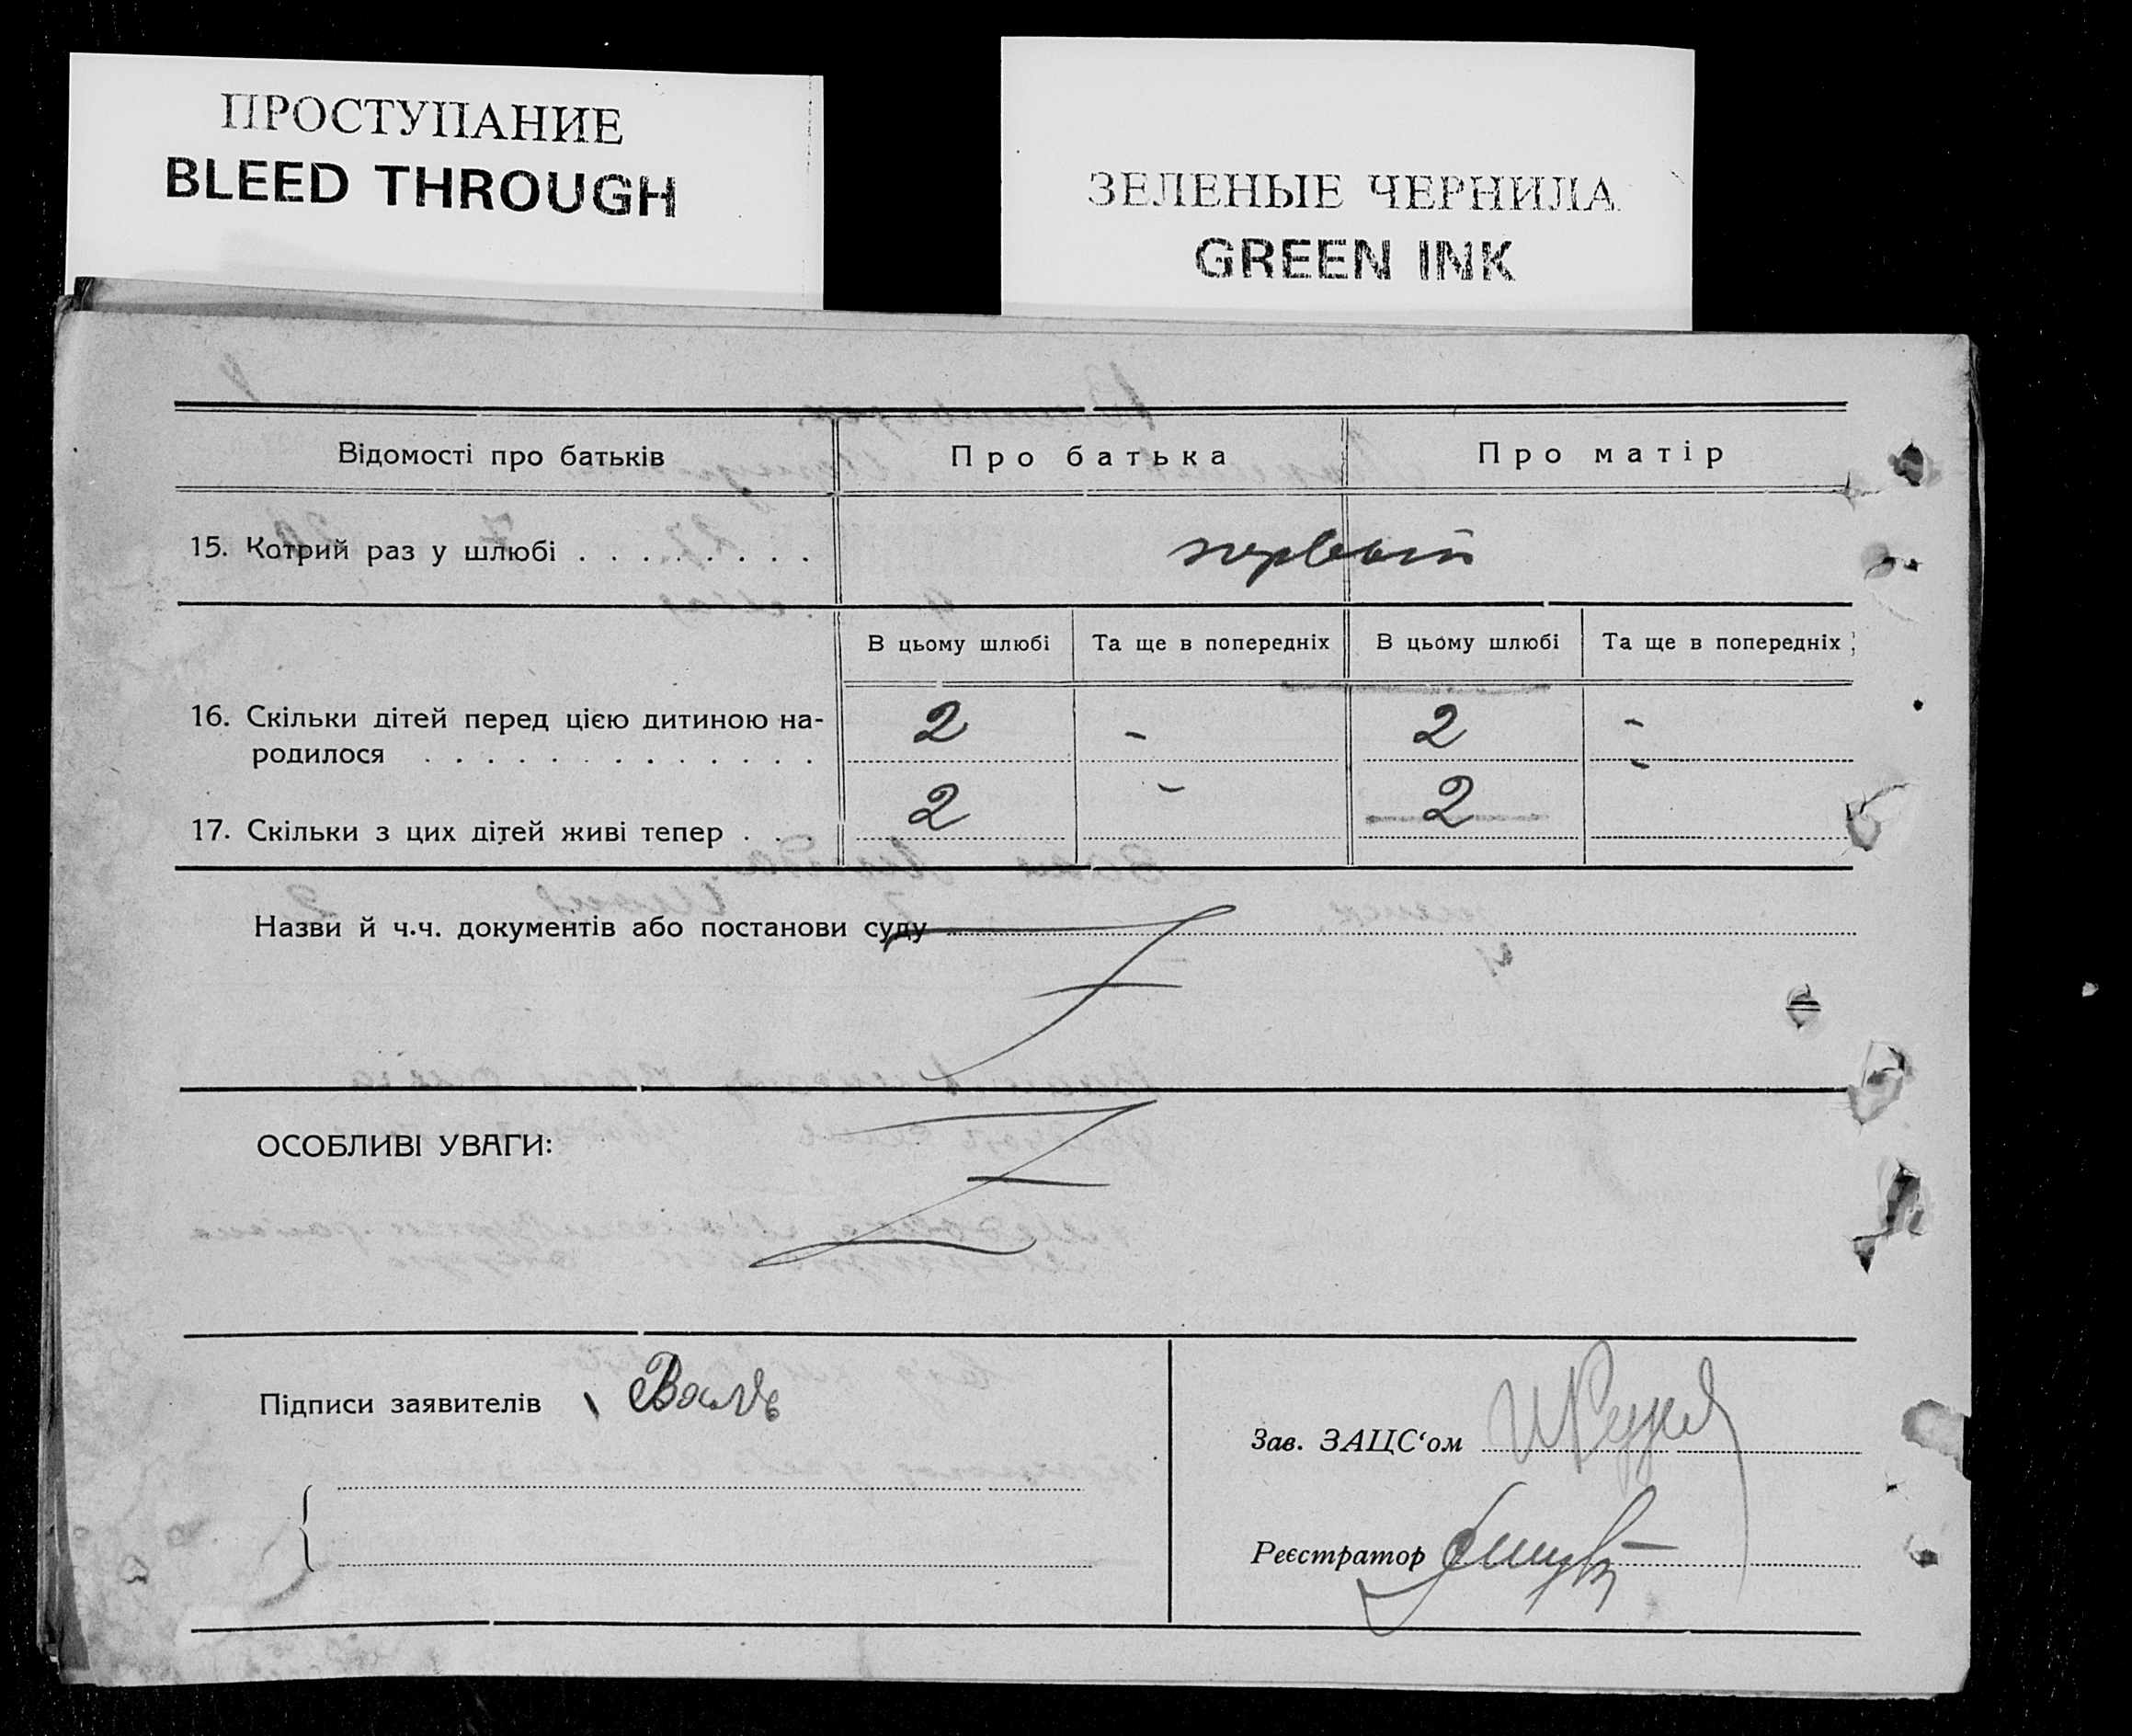 ПРОСТУПАНИЕ
BLEED THROUGH
ЗЕЛЕНЫЕ ЧЕРНИЛА
GREEN INK
Відомості про батьків Про батька Про матір
15. Котрий раз у шлюбі . . . . . . . . первый
В цьому шлюбі Та ще в попередніх В цьому шлюбі Та ще в попередніх
16. Скільки дітей перед цією дитиною на-
родилося . . . . . . . . . . . . . 2 - 2 -
17. Скільки з цих дітей живі тепер . . . 2 - 2 -
Назви й ч.ч. документів або постанови суду
ОСОБЛИВІ УВАГИ:
Підписи заявителів
Зав. ЗАЦС‘ом
Реєстратор